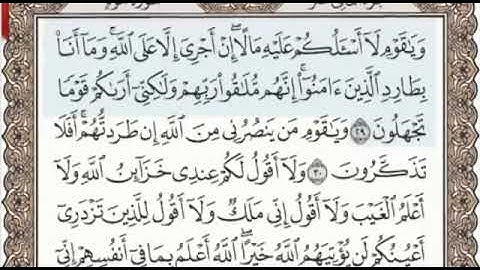 وَيَٰقَوْمِ لَآ أَسْـَٔلُكُمْ عَلَيْهِ مَالًا ۖ إِنْ أَجْرِىَ إِلَّا عَلَى ٱللَّهِ ۚ وَمَآ أَنَا۠
بِطَارِدِ ٱلَّذِينَ ءَامَنُوٓا۟ ۚ إِنَّهُم مُّلَٰقُوا۟ رَبِّهِمْ وَلَٰكِنِّىٓ أَرَىٰكُمْ قَوْمًا
تَجْهَلُونَ ٢٩ وَيَٰقَوْمِ مَن يَنصُرُنِى مِنَ ٱللَّهِ إِن طَرَدتُّهُمْ ۚ أَفَلَا
تَذَكَّرُونَ ٣٠ وَلَآ أَقُولُ لَكُمْ عِندِى خَزَآئِنُ ٱللَّهِ وَلَآ
أَعْلَمُ ٱلْغَيْبَ وَلَآ أَقُولُ إِنِّى مَلَكٌ وَلَآ أَقُولُ لِلَّذِينَ تَزْدَرِىٓ
أَعْيُنُكُمْ لَن يُؤْتِيَهُمُ ٱللَّهُ خَيْرًا ۖ ٱللَّهُ أَعْلَمُ بِمَا فِىٓ أَنفُسِهِمْ ۖ إِنِّىٓ